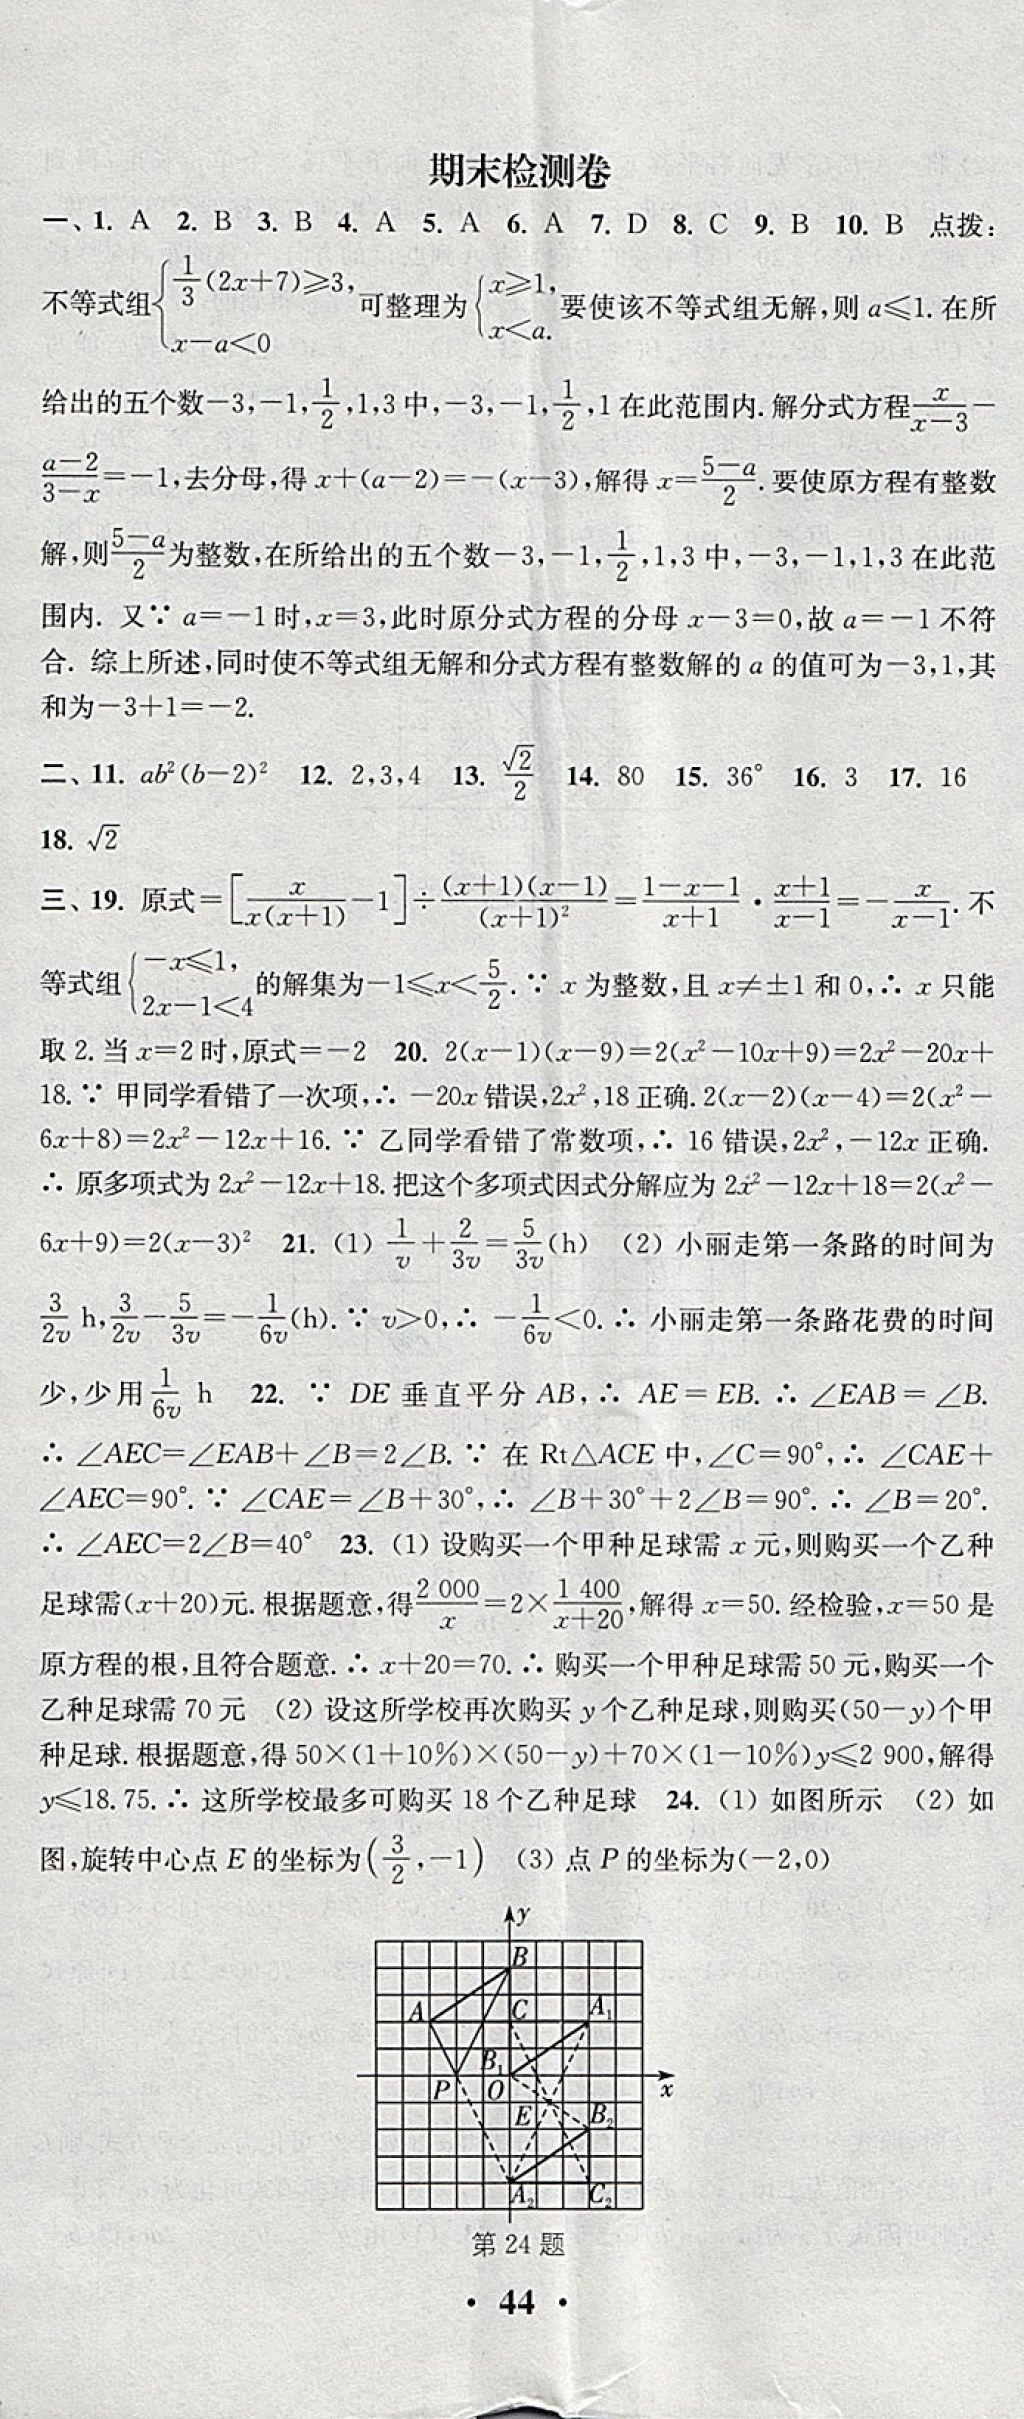 期末检测卷
一、1. A 2. B 3. B 4. A 5. A 6. A 7. D 8. C 9. B 10. B 点拨：
不等式组{1/3(2x+7)≥3, x-a<0 可整理为{x≥1, x<a. 要使该不等式组无解,则 a≤1. 在所
给出的五个数-3,-1,1/2,1,3中,-3,-1,1/2,1在此范围内. 解分式方程x/(x-3)-
(a-2)/(3-x)=-1,去分母,得 x+(a-2)=-(x-3),解得 x=(5-a)/2. 要使原方程有整数
解,则(5-a)/2为整数,在所给出的五个数-3,-1,1/2,1,3中,-3,-1,1,3在此范
围内. 又∵ a=-1时,x=3,此时原分式方程的分母 x-3=0,故 a=-1不符
合. 综上所述,同时使不等式组无解和分式方程有整数解的 a 的值可为-3,1,其
和为-3+1=-2.
二、11. ab²(b-2)² 12. 2,3,4 13. √2/2 14. 80 15. 36° 16. 3 17. 16
18. √2
三、19. 原式=[x/(x(x+1))-1]÷((x+1)(x-1))/(x+1)²=(1-x-1)/(x+1)·(x+1)/(x-1)=-x/(x-1). 不
等式组{-x≤1, 2x-1<4 的解集为-1≤x<5/2. ∵ x 为整数,且 x≠±1 和 0,∴ x 只能
取 2. 当 x=2 时,原式=-2 20. 2(x-1)(x-9)=2(x²-10x+9)=2x²-20x+
18. ∵ 甲同学看错了一次项,∴ -20x 错误,2x²,18 正确. 2(x-2)(x-4)=2(x²-
6x+8)=2x²-12x+16. ∵ 乙同学看错了常数项,∴ 16 错误,2x²,-12x 正确.
∴ 原多项式为 2x²-12x+18. 把这个多项式因式分解应为 2x²-12x+18=2(x²-
6x+9)=2(x-3)² 21. (1) 1/v+2/3v=5/3v(h) (2) 小丽走第一条路的时间为
3/2v h,3/2v-5/3v=-1/6v(h). ∵ v>0,∴ -1/6v<0. ∴ 小丽走第一条路花费的时间
少,少用1/6v h 22. ∵ DE 垂直平分 AB,∴ AE=EB. ∴ ∠EAB=∠B.
∴ ∠AEC=∠EAB+∠B=2∠B. ∵ 在 Rt△ACE 中,∠C=90°,∴ ∠CAE+
∠AEC=90°. ∵ ∠CAE=∠B+30°,∴ ∠B+30°+2∠B=90°. ∴ ∠B=20°.
∴ ∠AEC=2∠B=40° 23. (1) 设购买一个甲种足球需 x 元,则购买一个乙种
足球需(x+20)元. 根据题意,得2 000/x=2×1 400/(x+20),解得 x=50. 经检验,x=50 是
原方程的根,且符合题意. ∴ x+20=70. ∴ 购买一个甲种足球需 50 元,购买一个
乙种足球需 70 元 (2) 设这所学校再次购买 y 个乙种足球,则购买(50-y)个甲
种足球. 根据题意,得 50×(1+10%)×(50-y)+70×(1-10%)y≤2 900,解得
y≤18.75. ∴ 这所学校最多可购买 18 个乙种足球 24. (1) 如图所示 (2) 如
图,旋转中心点 E 的坐标为(3/2,-1) (3) 点 P 的坐标为(-2,0)
y
B
A C A₁
B₁
P O x
E B₂
A₂ C₂
第 24 题
· 44 ·